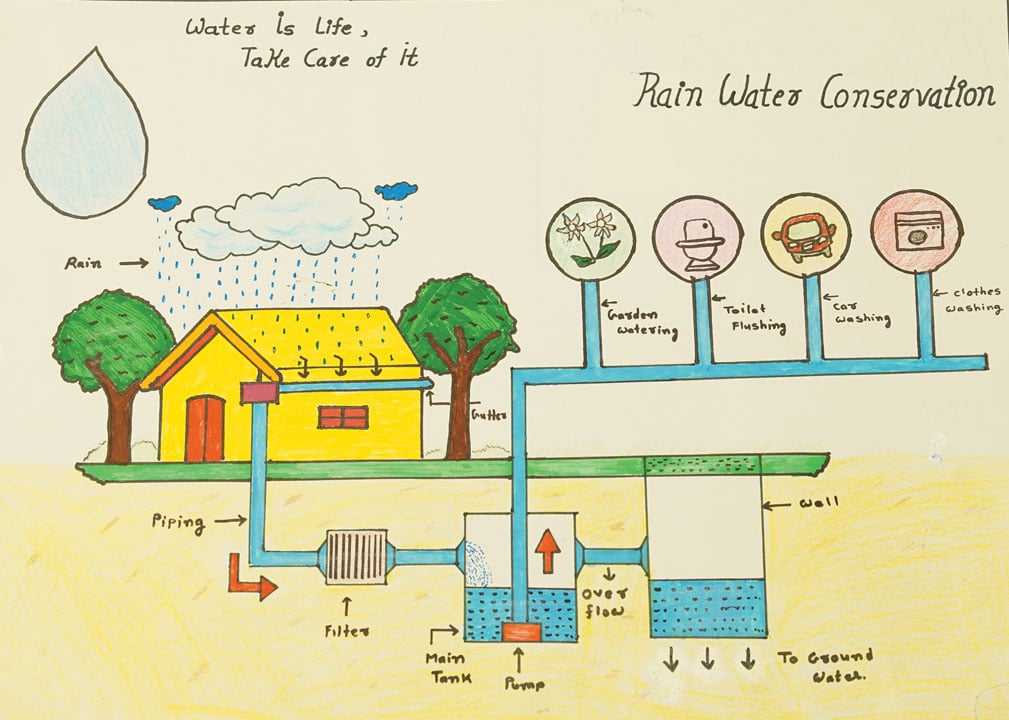 Water is Life,
Take Care of it
Rain Water Conservation
Rain
Garden
Watering
Toilet
Flushing
Car
Washing
Clothes
Washing
Gutter
Piping
Well
Filter
Over
flow
Main
Tank
Pump
To Ground
Water.